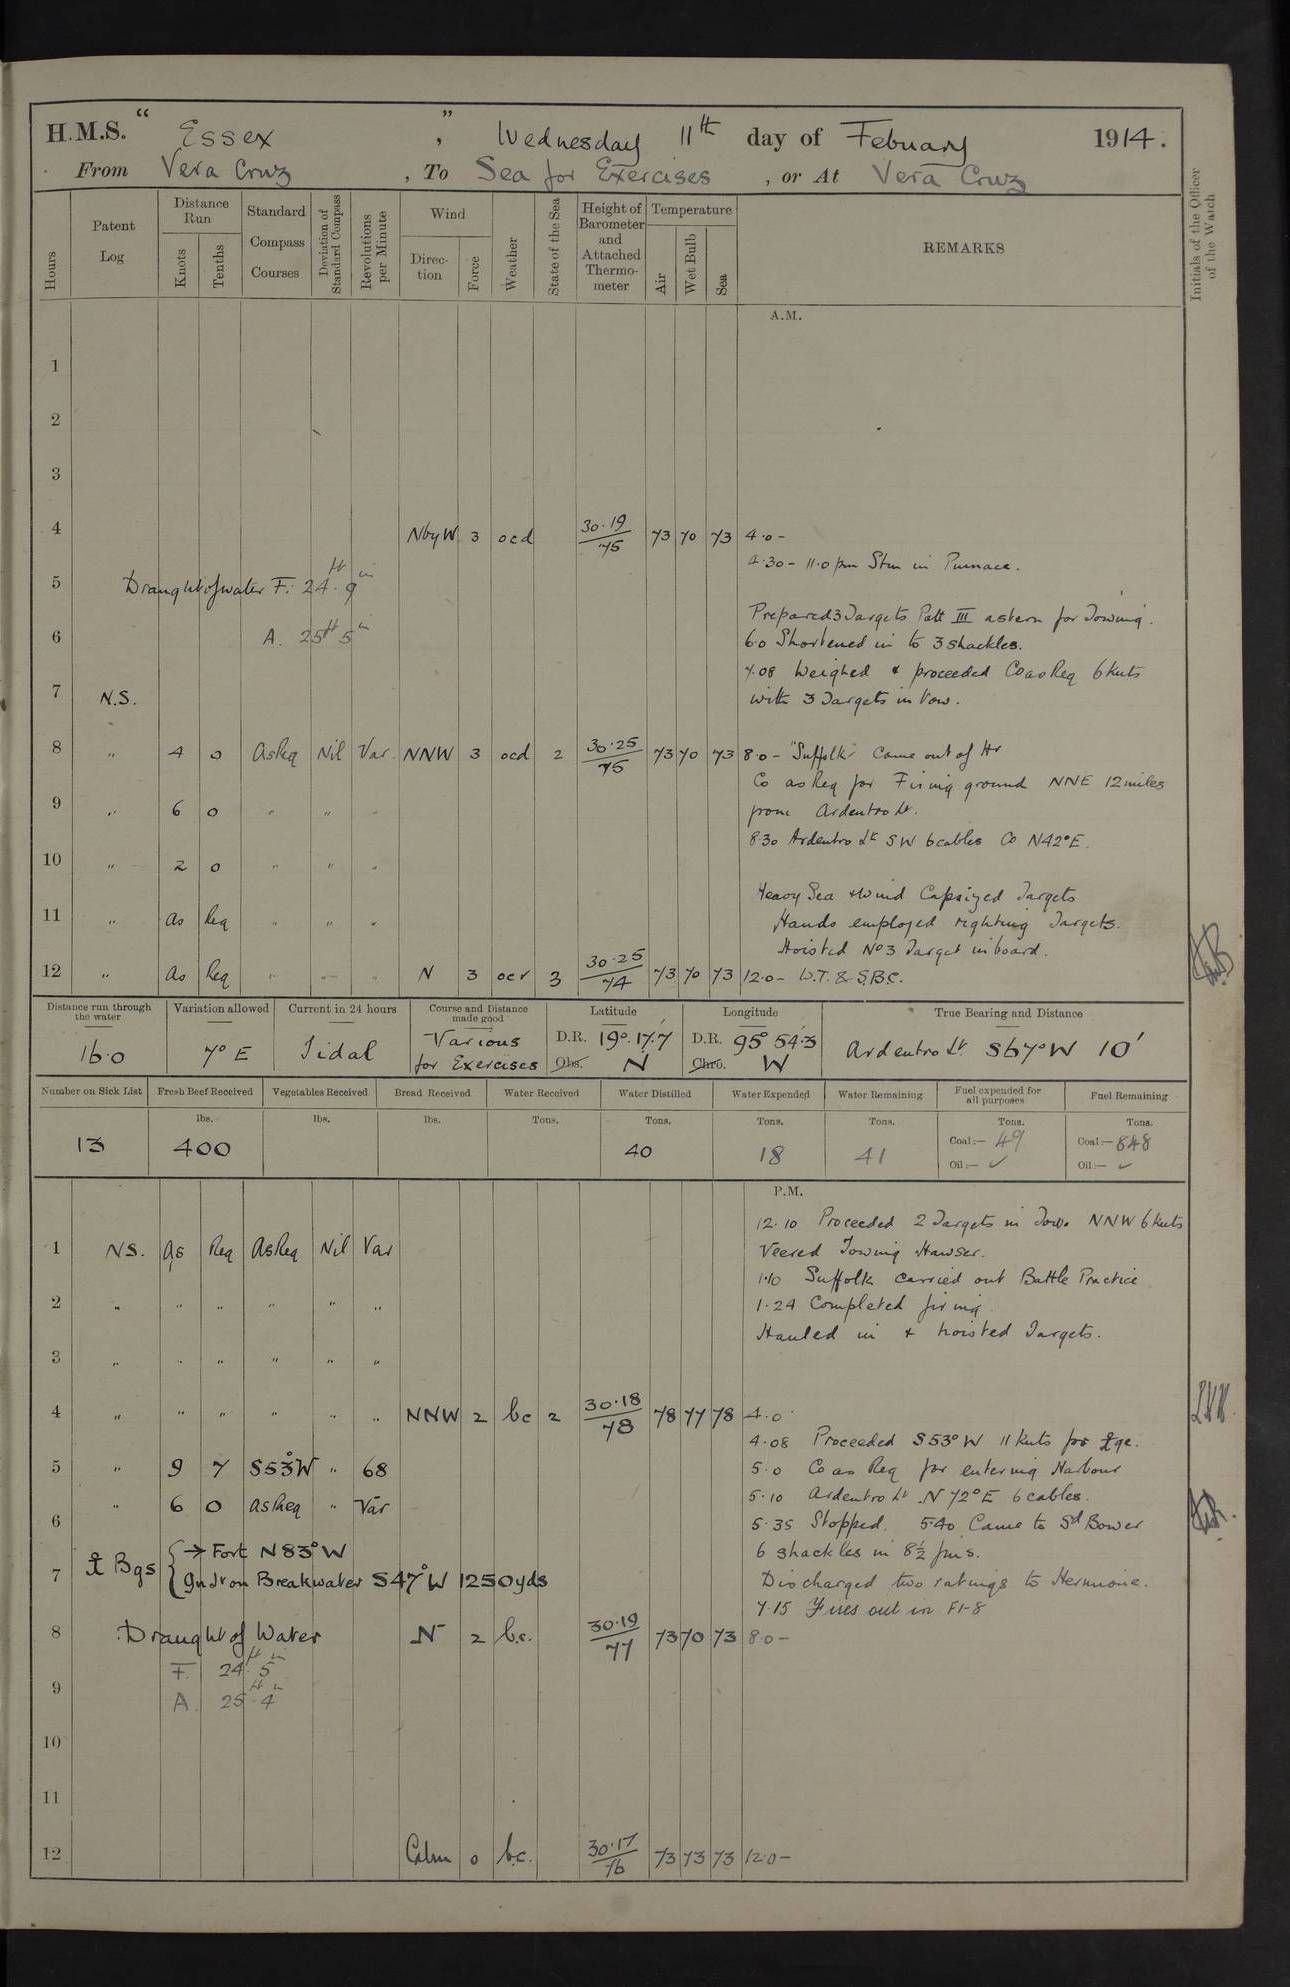 H.M.S. " Essex ", Wednesday 11th day of Febuary 1914.
From Vera Cruz, To Sea for Exercises, or At Vera Cruz
Hours
Patent Log
Distance Run
Knots
Tenths
Standard Compass Courses
Deviation of Standard Compass
Revolutions per Minute
Wind
Direction
Force
Weather
State of the Sea
Height of Barometer and Attached Thermometer
Temperature
Air
Wet Bulb
Sea
REMARKS
Initials of the Officer of the Watch
A.M.
1
2
3
4 NbyW 3 ocd 30.19/75 73 70 73 4.0 -
4.30 - 11.0 pm Stm in Pinnace.
5 Draught of water F. 24ft. 9in
Prepared 3 Targets Patt III astern for Towing.
6 A. 25ft 5in 6.0 Shortened in to 3 shackles.
7.08 Weighed & proceeded Co as Req 6 Knts
7 N.S. with 3 Targets in tow.
8 " 4 0 AsReq Nil Var. NNW 3 ocd 2 30.25/75 73 70 73 8.0 - "Suffolk" Came out of Hr
Co as Req for Firing ground NNE 12 miles
9 " 6 0 " " " from Ardentro Lt.
8.30 Ardentro Lt SW 6 cables Co N42°E.
10 " 2 0 " " "
Heavy Sea & Wind Capsized Targets
11 " as Req " " " Hands employed righting Targets.
Hoisted No 3 Target inboard.
12 " as Req " " " N 3 ocr 3 30.25/74 73 70 73 12.0 - W.T. & S.B.C.
Distance run through the water
Variation allowed
Current in 24 hours
Course and Distance made good
Latitude
Longitude
True Bearing and Distance
16.0 7° E Tidal Various for Exercises D.R. 19°.17.'7 N Obs. D.R. 95° 54.'3 W Chro. Ardentro Lt. S67°W 10'
Number on Sick List
Fresh Beef Received
Vegetables Received
Bread Received
Water Received
Water Distilled
Water Expended
Water Remaining
Fuel expended for all purposes
Fuel Remaining
lbs. lbs. lbs. Tons. Tons. Tons. Tons. Tons. Tons.
13 400 40 18 41 Coal:— 49 Coal:— 848
Oil:— ✓ Oil:— ✓
P.M.
12.10 Proceeded 2 Targets in Tow. NNW 6 Knts
1 NS. As Req AsReq Nil Var Veered Towing Hawser.
1.10 Suffolk carried out Battle Practice
2 " " " " " " 1.24 Completed firing
Hauled in & hoisted Targets.
3 " " " " " "
4 " " " " " " NNW 2 bc 2 30.18/78 78 77 78 4.0
4.08 Proceeded S53°W 11 Knts for ⚓ge.
5 " 9 7 S53°W " 68 5.0 Co as Req for entering Harbour
" 6 0 AsReq " Var 5.10 Ardentro Lt N 72°E 6 cables.
6 5.35 Stopped. 5.40 Came to Sd Bower
⚓ Bgs { → Fort N83°W 6 shackles in 8½ fms.
7 Gn Lt on Breakwater S47°W 1250yds Discharged two ratings to Hermione.
7.15 Fires out in F1-8
8 Draught of Water N 2 b.c. 30.19/77 73 70 73 8.0 -
F. 24ft. 5in
9 A. 25ft. 4in
10
11
12 Calm 0 b.c. 30.17/76 73 73 73 12.0 -